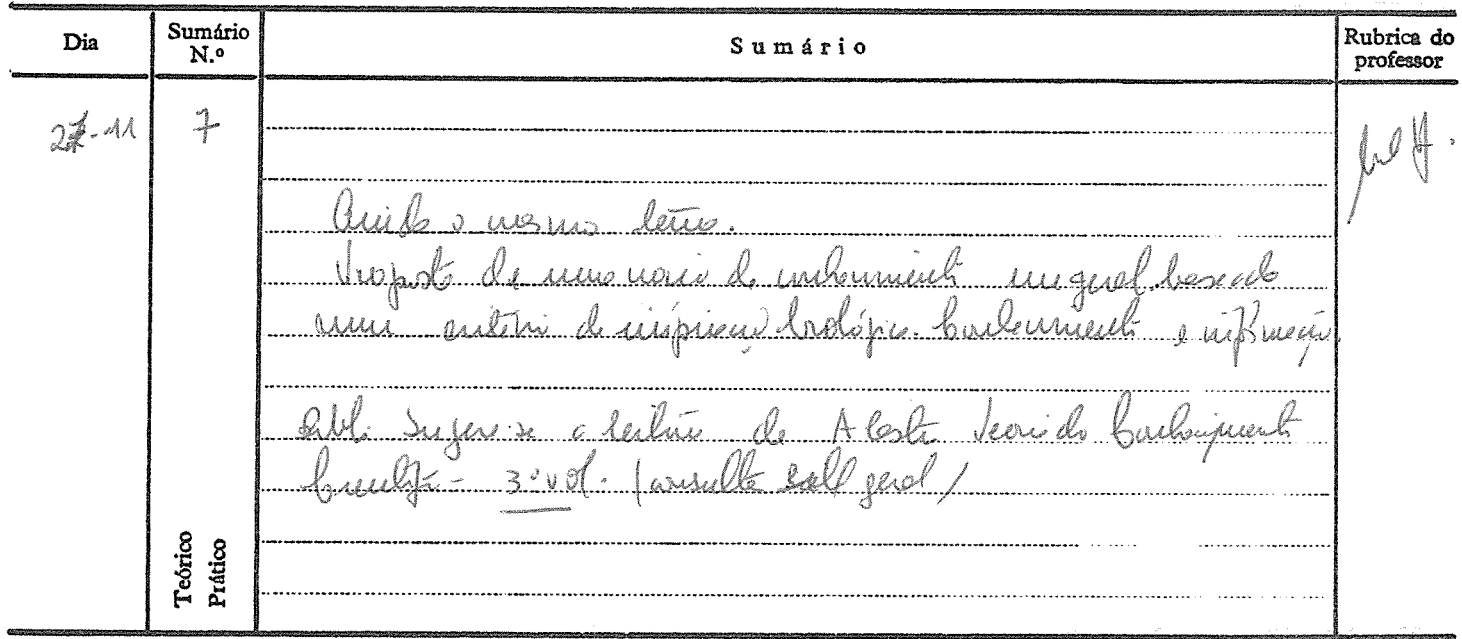 Dia
Sumário N.º
Sumário
Rubrica do professor
27-11
7
Ainda o mesmo tema.
Proposta de uma noção de conhecimento em geral baseada
num critério de inspiração biológica. Conhecimento e informação.
Bibl. Sugere-se a leitura de A. Teoria do Conhecimento
Científico - 3º vol. (consulte geral)
Teórico
Prático